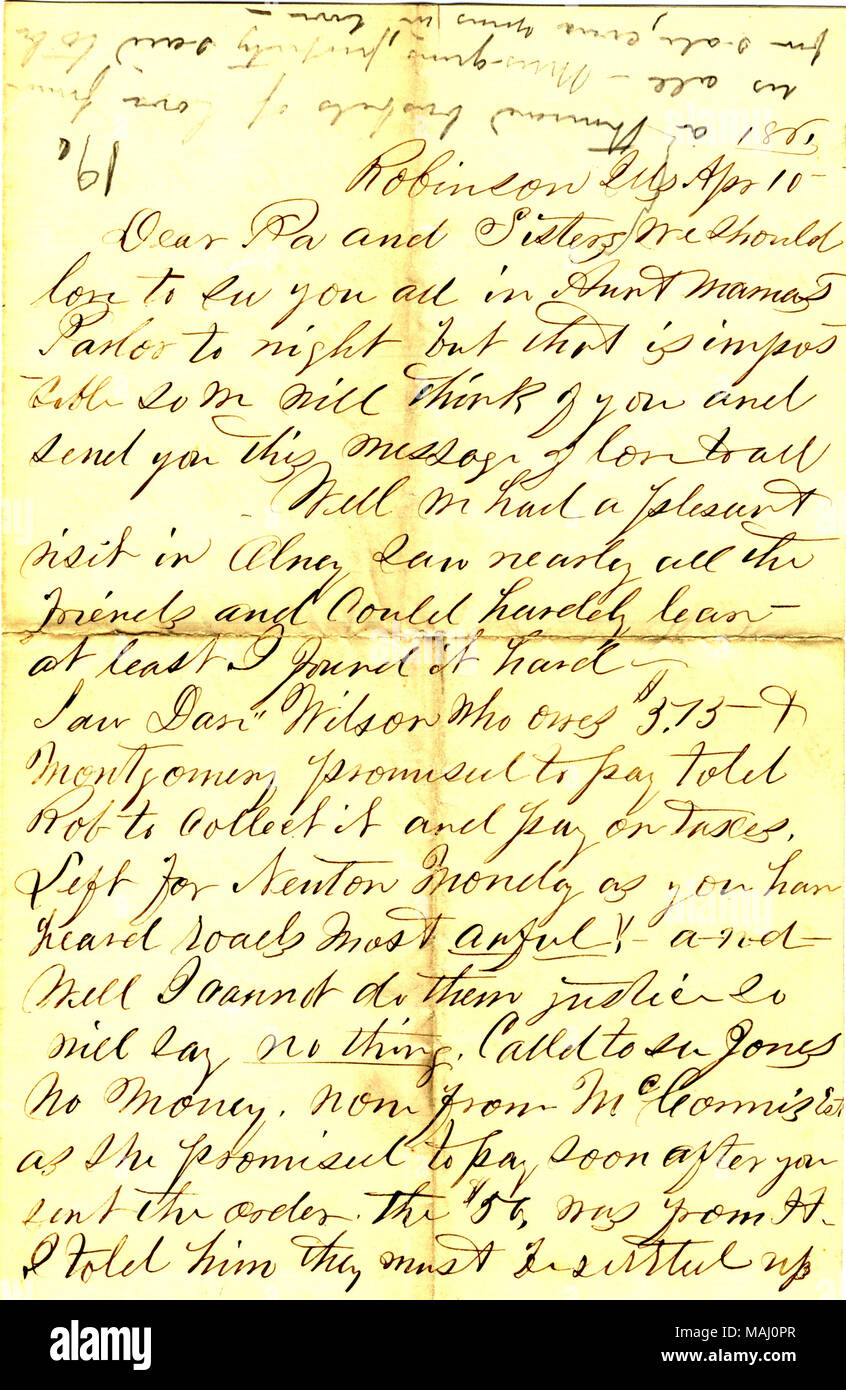 for sale, cross guns in town
us all – Mrs. property said to be
a thousand bushels of love from
1881
19
Robinson Ills Apr 10 –
Dear Pa and Sisters, We should
love to see you all in Aunt Mamas
Parlor to night but that is impos
sible so we will think of you and
send you this message of love to all
Well we had a plesant
visit in Olney saw nearly all the
friends and Could hardely leave –
at least I found it hard –
Saw Dave" Wilson who owes $3.75 – &
Montgomery promised to pay told
Rob to Collect it and pay on taxes.
Left for Newton Monday as you have
heard roads most awful!! – and –
Well I cannot do them justice so
will say no thing. Called to see Jones
No Money. none from McCormis Est
as she promised to pay soon after you
sent the order. the $50, was from H.
I told him they must be settled up
alamy
Image ID: MAJ0PR
www.alamy.com